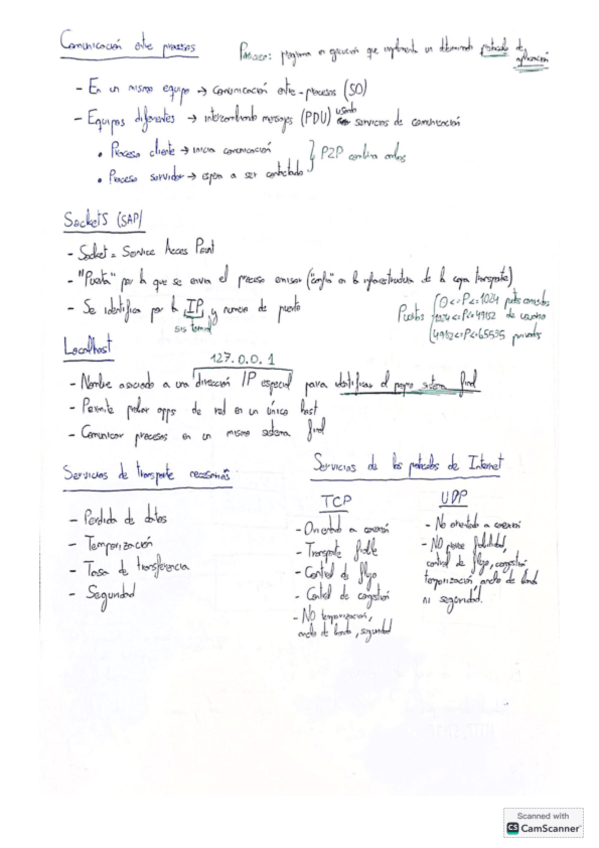 Comunicación entre procesos
Proceso: programa en ejecución que implementa un determinado protocolo de
aplicación
- En un mismo equipo → comunicación entre-procesos (SO)
- Equipos diferentes → intercambiando mensajes (PDU) usando servicios de comunicación
• Proceso cliente → inicia comunicación
• Proceso servidor → espera a ser contactado
} P2P combina ambos
Sockets (SAP)
- Socket = Service Acces Point
- "Puerta" por la que se envia el proceso emisor ("confía" en la infraestructura de la capa transporte)
- Se identifica por la IP y numero de puerto
sis terminal
Puertos
0<=P<=1024 puertos conocidos
1024<=P<=49152 de usuario
49152<=P<=65535 privados
Localhost
127.0.0.1
- Nombre asociado a una dirección IP especial para identificar el propio sistema final
- Permite probar apps de red en un único host
- Comunicar procesos en un mismo sistema final
Servicios de transporte necesarios
- Perdida de datos
- Temporización
- Tasa de transferencia
- Seguridad
Servicios de los protocolos de Internet
TCP
- Orientado a conexión
- Transporte fiable
- Control de flujo
- Control de congestión
- NO temporización,
ancho de banda, seguridad
UDP
- No orientado a conexión
- NO provee fiabilidad,
control de flujo, congestión
temporización, ancho de banda
ni seguridad.
Scanned with
CS CamScanner